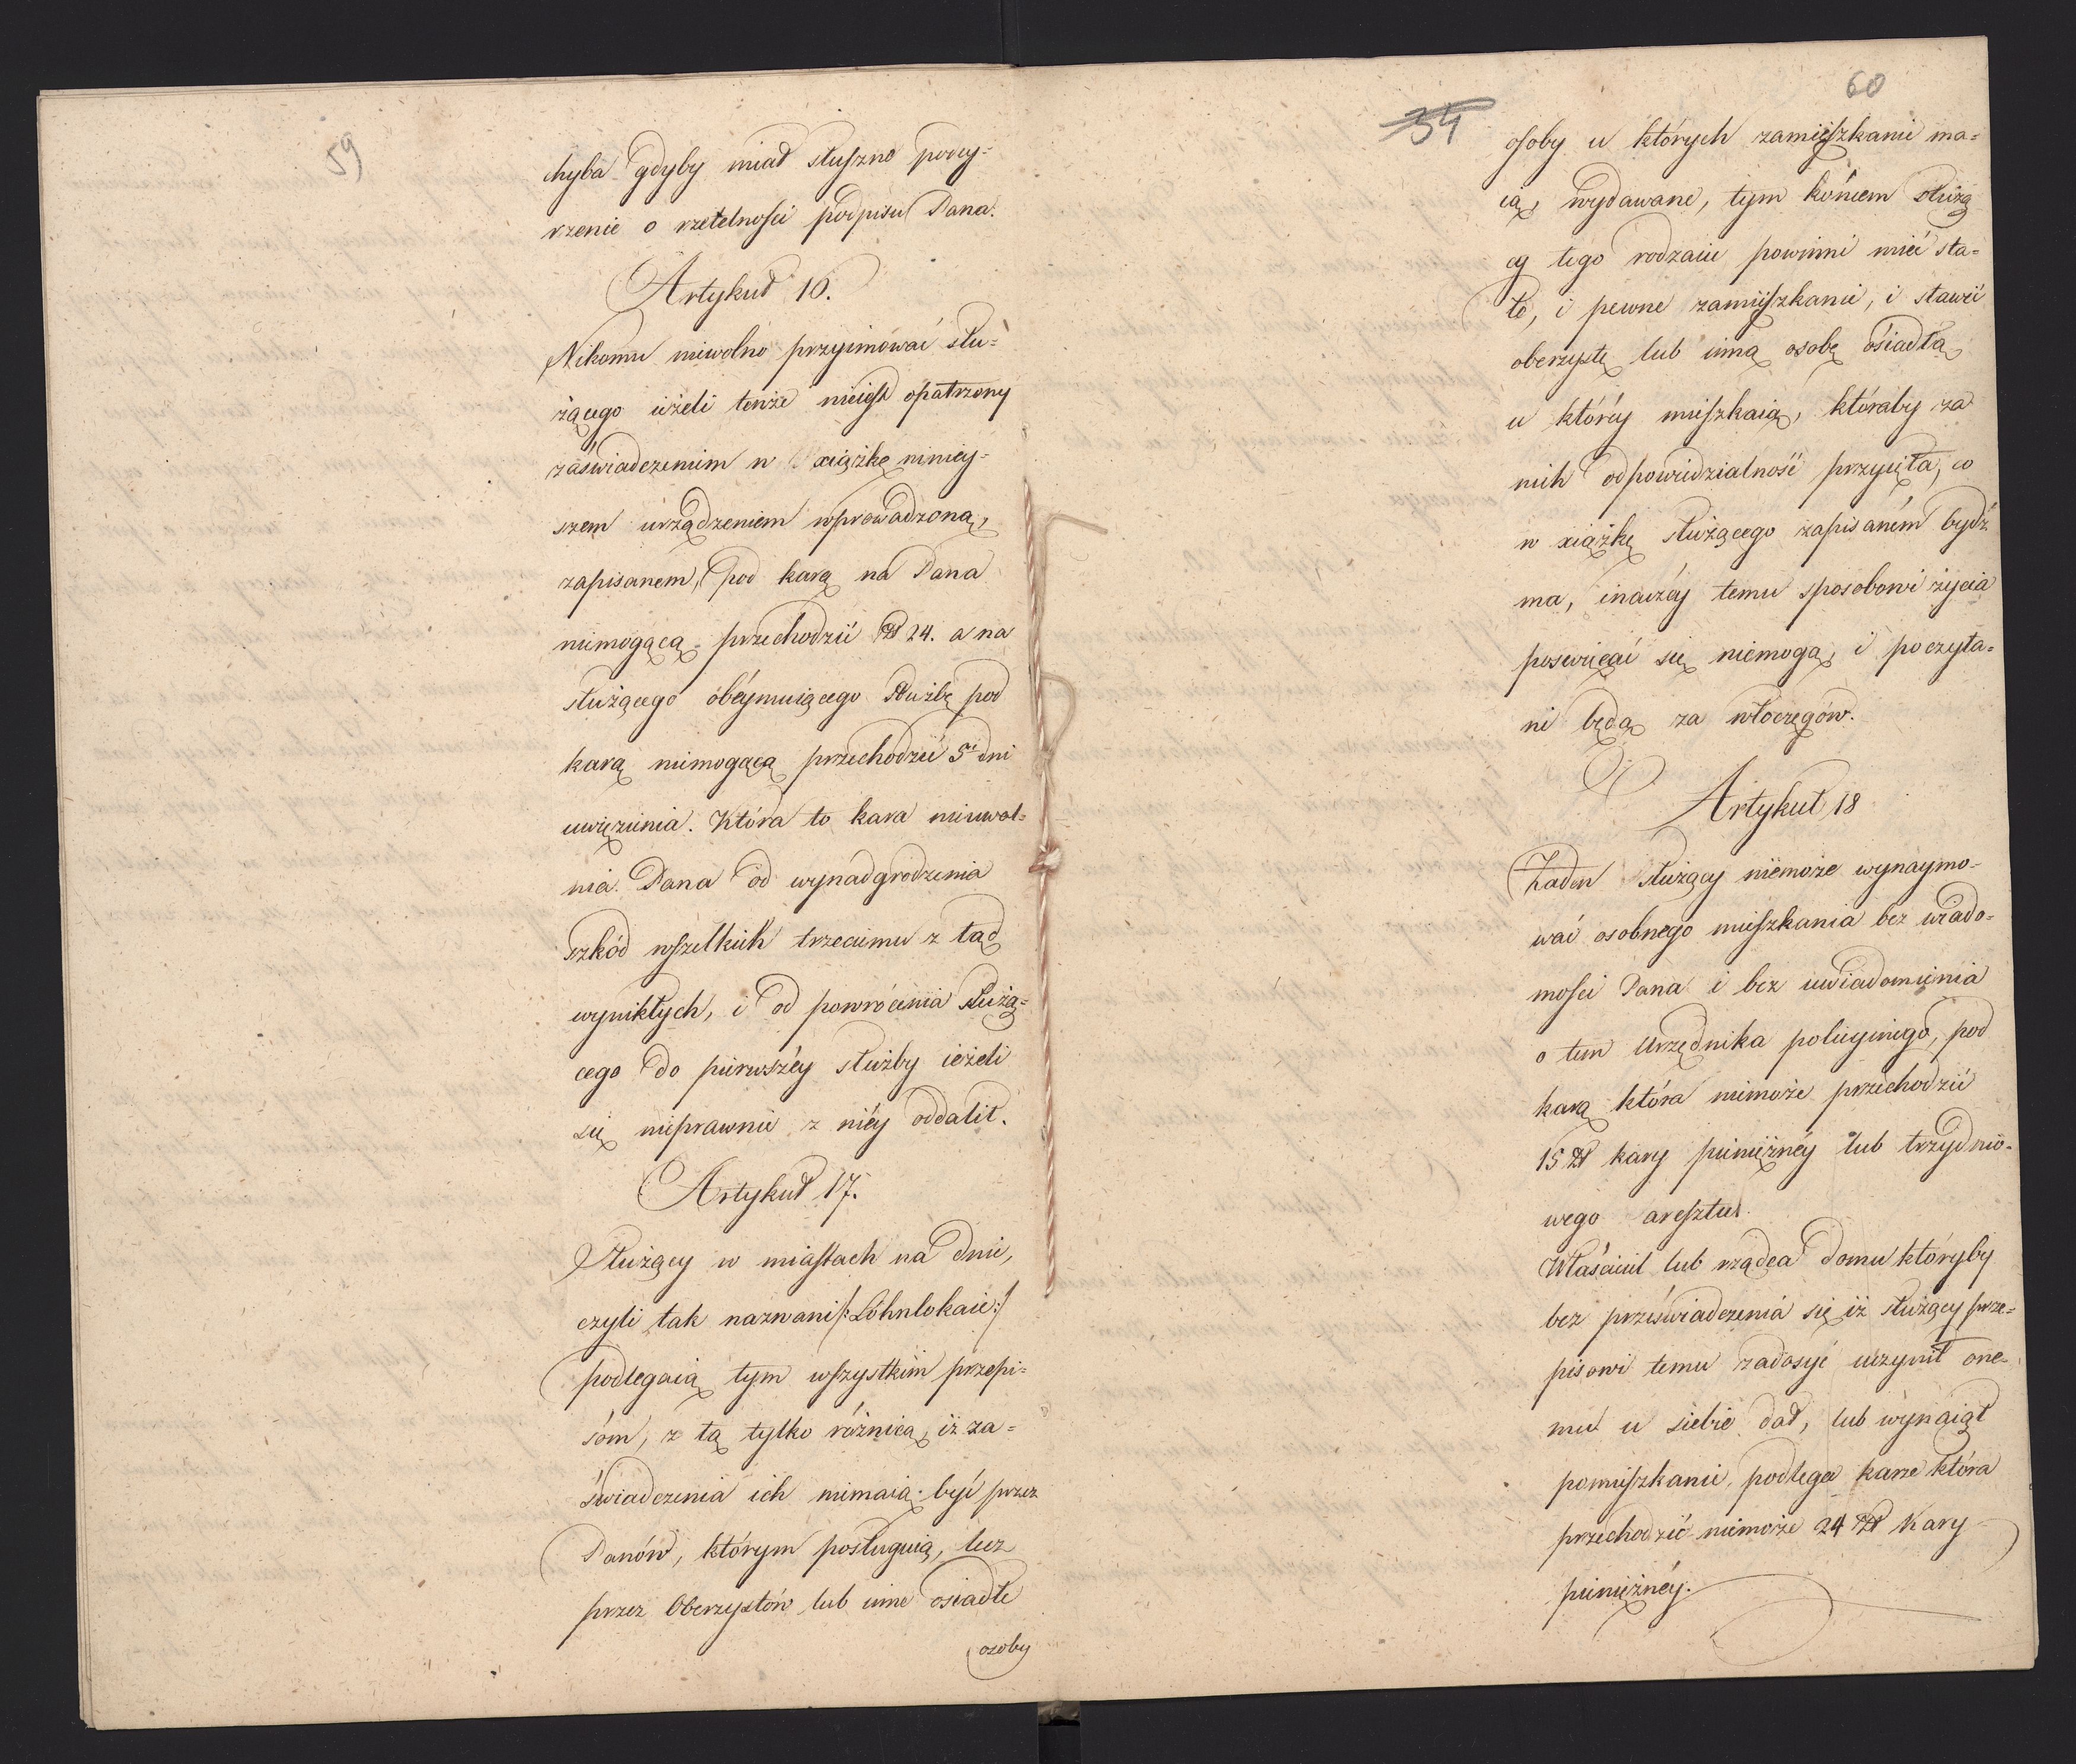 59
chyba gdyby miał słuszne podey=
rzenie o rzetelności podpisu Pana.
Artykuł 16.
Nikomu niewolno przyimować słu=
żącego ieżeli tenże nieiest opatrzony
zaświadczeniem w xiążkę niniey=
szem urządzeniem wprowadzoną,
zapisanem, pod karą na Pana
niemogącą przechodzić Zł 24. a na
służącego obéymuiącego służbę pod
karą niemogącą przechodzić 5ci dni
uwięzienia. Która to kara nieuwal=
nia Pana od wynadgrodzenia
szkód wszelkich trzeciemu z tąd
wynikłych, i od powrócenia służą=
cego do pierwszéy służby ieżeli
się nieprawnie z niéy oddalił.
Artykuł 17.
Służący w miastach na dnie,
czyli tak nazwani /: Löhnlokaie :/
podlegaią tym wszystkim przepi=
sóm, z tą tylko różnicą, iż za=
świadczenia ich niemaią być przez
Panów, którym posługuią, lecz
przez Oberzystów lub inne osiadłe
osoby
54
60
osoby u których zamięszkanie ma=
ią, wydawane, tym końcem służą
cy tego rodzaiu powinni mieć sta=
łe, i pewne zamięszkanie, i stawić
oberzystę lub inną osobę ósiadłą
u któréy mieszkaią, któraby za
nich odpowiedzialność przyięła, co
w xiążkę służącego zapisaném bydź
ma, inaczéy temu sposobowi życia
poswięcać się niemogą, i poczyta=
ni będą za włoczęgów.
Artykuł 18
Żaden służący niemoże wynaymo=
wać osobnego mieszkania bez wiado=
mości Pana i bez uwiadomienia
o tem Urzędnika policyinego, pod
karą która niemoże przechodzić
15 Zł kary pieniężnéy lub trzydnio=
wego aresztu.
Właściciel lub rządca domu któryby
bez przeświadczenia się iż służący prze=
pisowi temu zadosyć uczynił one=
mu u siebie dał, lub wynaiął
pomieszkanie, podlega karze która
przechodzić niemoże 24 Zł Kary
pieniężnéy.